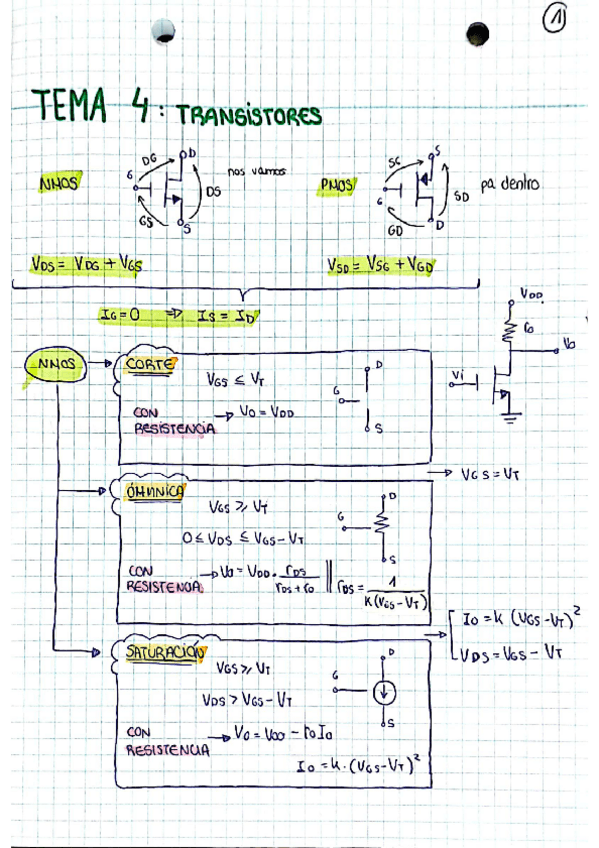 1
TEMA 4: TRANSISTORES
NMOS
G
DG
D
DS
GS
S
nos vamos
PMOS
G
SG
S
SD
GD
D
pa dentro
VDS = VDG + VGS
VSD = VSG + VGD
IG = 0 ⇒ IS = ID
VDD
ro
Vo
Vi
NMOS
CORTE
VGS ≤ VT
CON RESISTENCIA → Vo = VDD
G
D
S
→ VGS = VT
ÓHMNICA
VGS ≥ VT
0 ≤ VDS ≤ VGS - VT
CON RESISTENCIA → Vo = VDD · rDS / (rDS + ro) || rDS = 1 / (K(VGS - VT))
G
D
S
→ ID = K (VGS - VT)²
VDS = VGS - VT
SATURACIÓN
VGS ≥ VT
VDS > VGS - VT
CON RESISTENCIA → Vo = VDD - roIo
ID = K · (VGS - VT)²
G
D
S